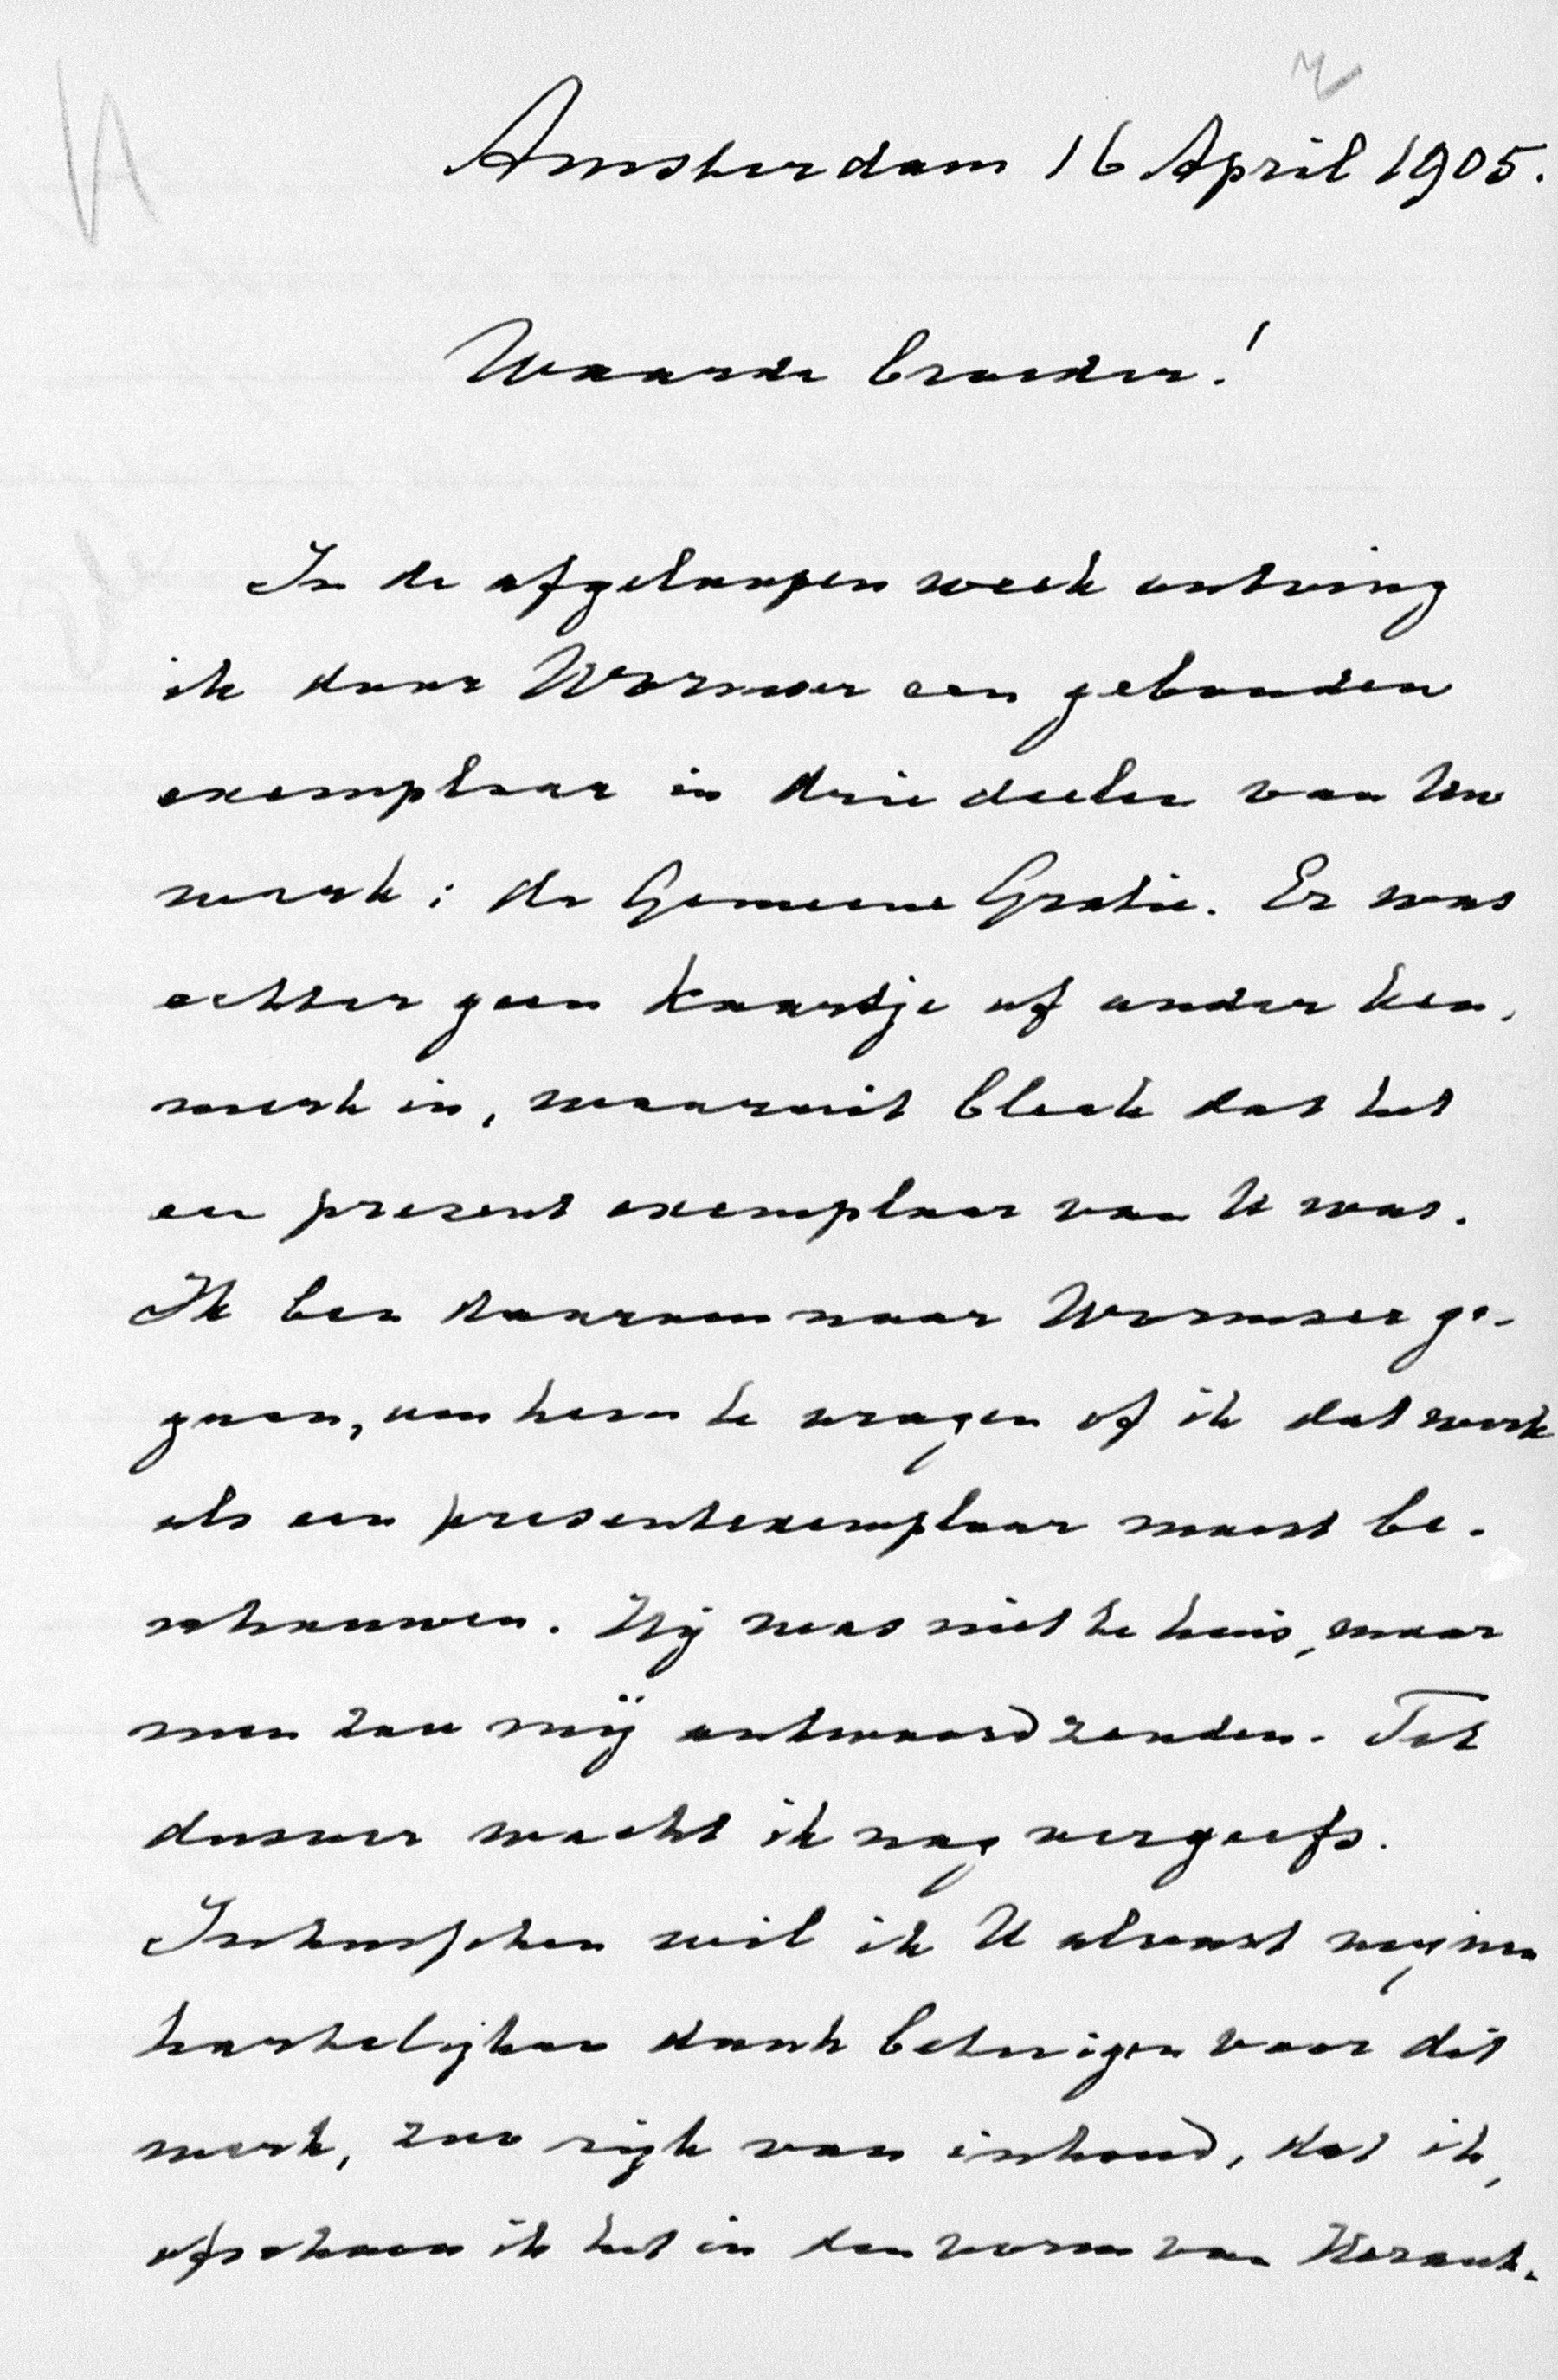 Amsterdam 16 April 1905.
Waarde broeder!
In de afgeloopen week ontving
ik door Wormser een gebonden
exemplaar in drie deelen van Uw
werk: de Gemeene Gratie. Er was
echter geen kaartje of ander ken-
merk in, waaruit bleek dat het
een present exemplaar van U was.
Ik ben daarom naar Wormser ge-
gaan, om hem te vragen of ik dat werk
als een presentexemplaar moest be-
schouwen. Hij was niet te huis, maar
men zou mij antwoord zenden. Tot
dusver wacht ik nog vergeefs.
Intusschen wil ik U alvast mijn
hartelijken dank betuigen voor dit
werk, zoo rijk van inhoud, dat ik,
ofschoon ik het in den vorm van Heraut-